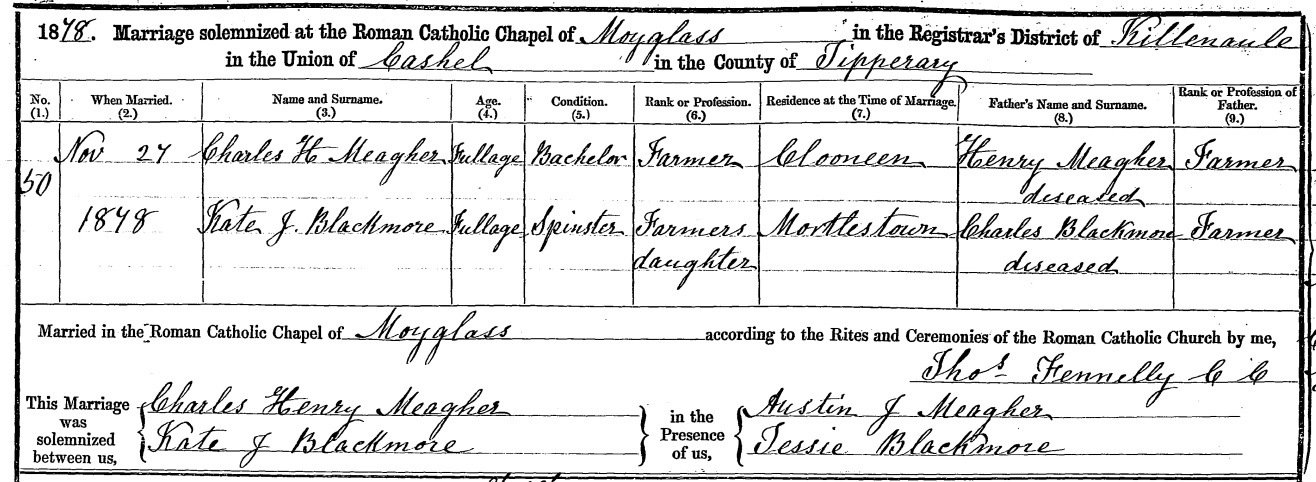 1878. Marriage solemnized at the Roman Catholic Chapel of Moyglass in the Registrar's District of Killenaule
in the Union of Cashel in the County of Tipperary
No. (1.) When Married. (2.) Name and Surname. (3.) Age. (4.) Condition. (5.) Rank or Profession. (6.) Residence at the Time of Marriage. (7.) Father's Name and Surname. (8.) Rank or Profession of Father. (9.)
50 Nov 27 Charles H Meagher Fullage Bachelor Farmer Clooneen Henry Meagher Farmer
diseased
1878 Kate J. Blackmore Fullage Spinster Farmers Mortlestown Charles Blackmore Farmer
daughter diseased
Married in the Roman Catholic Chapel of Moyglass according to the Rites and Ceremonies of the Roman Catholic Church by me,
Thos Fennelly C C
This Marriage was solemnized between us, Charles Henry Meagher in the Presence of us, Austin J Meagher
Kate J Blackmore Jessie Blackmore